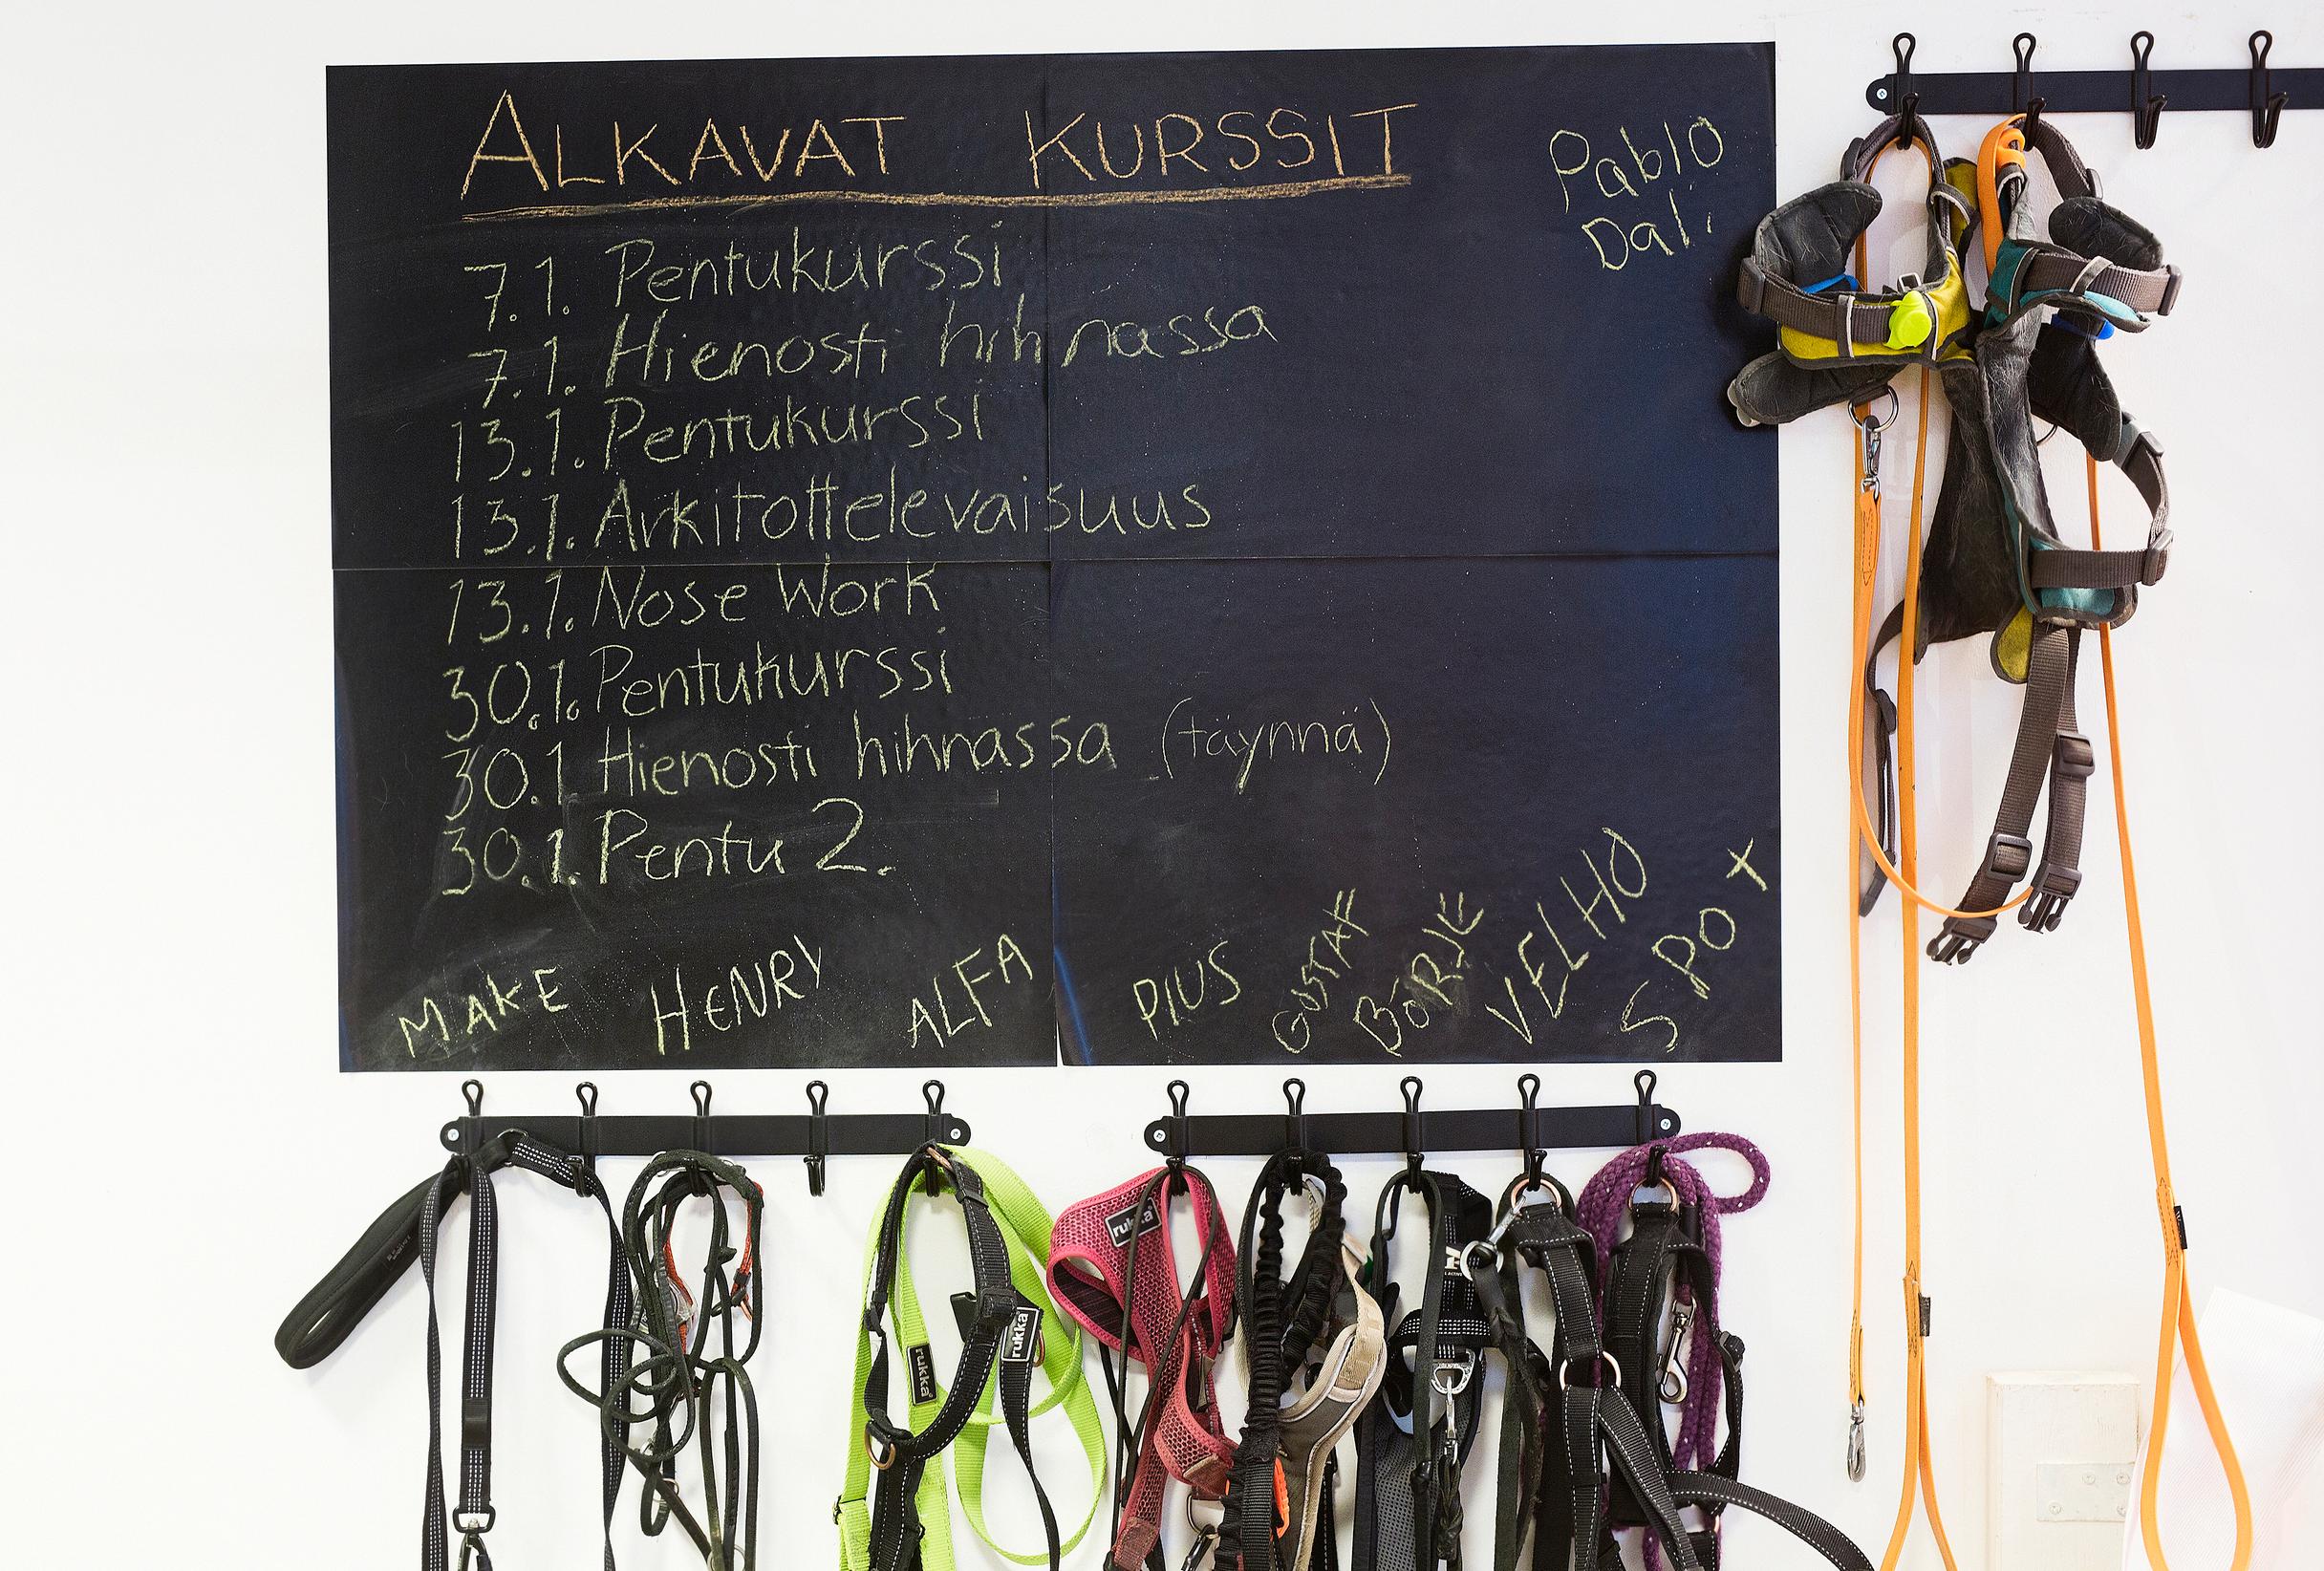 ALKAVAT KURSSIT
Pablo
Dali
7.1. Pentukurssi
7.1. Hienosti hihnassa
13.1. Pentukurssi
13.1. Arkitottelevaisuus
13.1. Nose Work
30.1. Pentukurssi
30.1 Hienosti hihnassa (täynnä)
30.1. Pentu 2.
MAKE HENRY ALFA PIUS GUSTAF BÖRJE VELHO SPOT
rukka
rukka
rukka